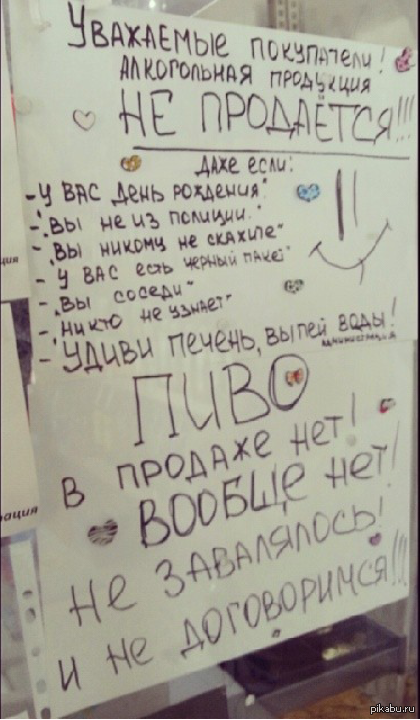 УВАЖАЕМЫЕ ПОКУПАТЕЛИ!
АЛКОГОЛЬНАЯ ПРОДУКЦИЯ
НЕ ПРОДАЁТСЯ!!!
ДАЖЕ ЕСЛИ:
- „У ВАС ДЕНЬ РОЖДЕНИЯ"
- „ВЫ НЕ ИЗ ПОЛИЦИИ."
- „ВЫ НИКОМУ НЕ СКАЖИТЕ"
- У ВАС ЕСТЬ ЧЕРНЫЙ ПАКЕТ"
- „ВЫ СОСЕДИ"
- „НИКТО НЕ УЗНАЕТ"
- УДИВИ ПЕЧЕНЬ, ВЫПЕЙ ВОДЫ!
администрация
ПИВО
В ПРОДАЖЕ НЕТ!
ВООБЩЕ НЕТ!
НЕ ЗАВАЛЯЛОСЬ!
И НЕ ДОГОВОРИМСЯ!!!
pikabu.ru